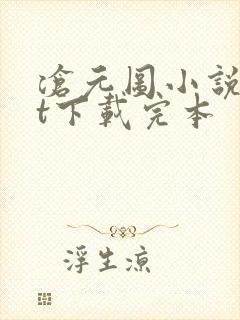 滄元圖小說
t下載完本
浮生涼